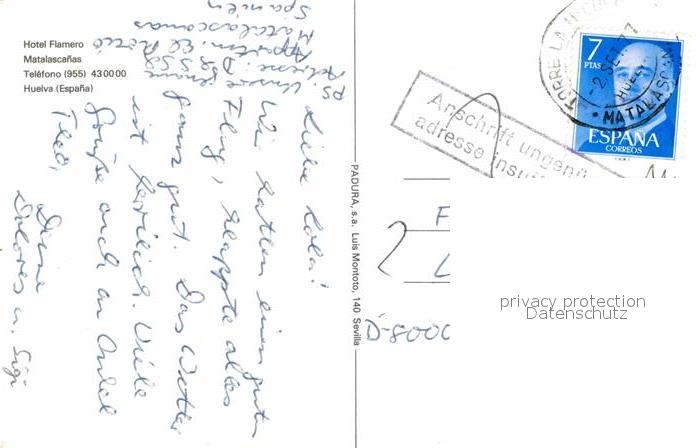 Hotel Flamero
Matalascañas
Teléfono (955) 430000
Huelva (España)
Liebe Lola!
Wir hatten einen guten
Flug, klappte alles
ganz gut. Das Wetter
ist herrlich. Viele
Grüße auch an Onkel
Theo,
Deine
Dolores u. Sigi
PS. Unsere genaue
Adresse:
Apartm. El Rocio
Matalascanas
Spanien
PADURA, s.a. Luis Montoto, 140 Sevilla
TORRE LA HIGUERA
-2 SET 77
HUELVA
MATALASCAÑAS
7
PTAS
ESPAÑA
CORREOS
Anschrift ungenü
adresse insuff
F
L
D-8000
privacy protection
Datenschutz